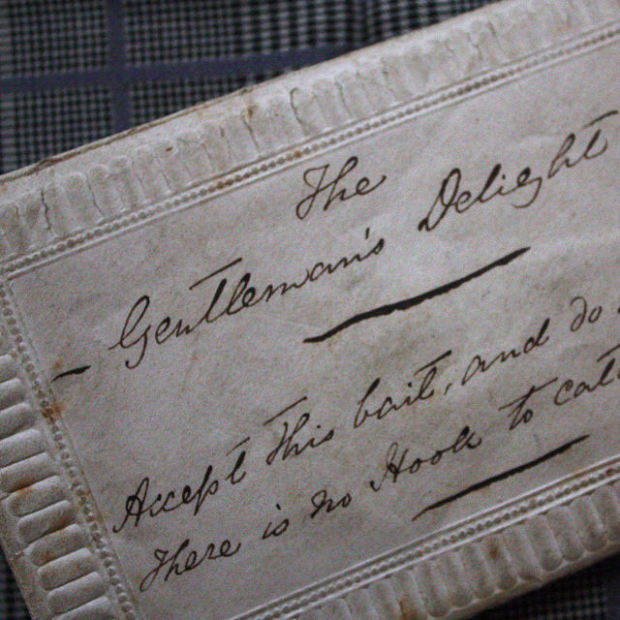 The
— Gentleman's Delight
Accept this bait, and do
There is no Hook to